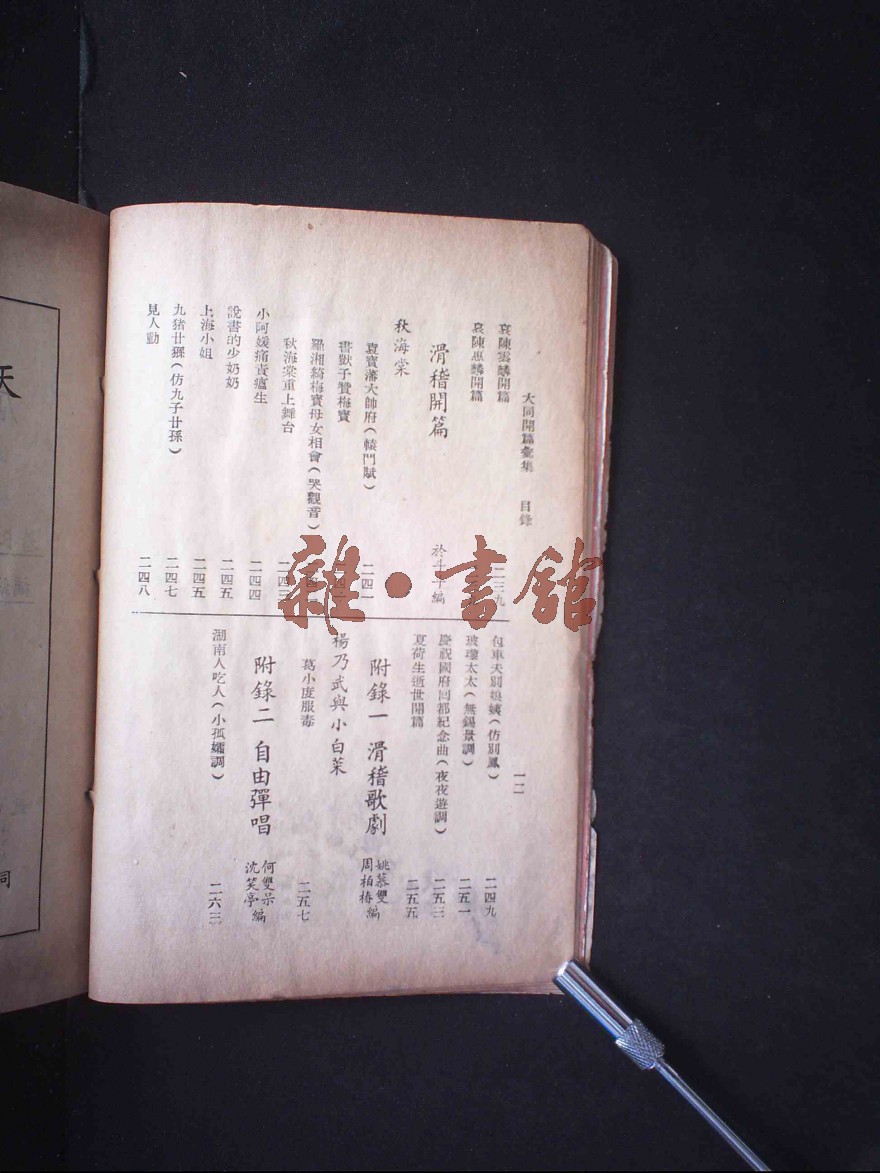 大同開篇彙集 目錄 一二
哀陳雲麟開篇
哀陳惠麟開篇 二三九
滑稽開篇 於斗斗編
秋海棠
袁寶藩大帥府(轅門賦) 二四一
書獃子贊梅寶
羅湘綺梅寶母女相會(哭觀音)
秋海棠重上舞台 二四三
小阿媛痛責瘟生 二四四
說書的少奶奶 二四五
上海小姐 二四五
九猪廿猻(仿九子廿孫) 二四七
見人勸 二四八
包車夫別姨姨(仿別鳳) 二四九
玻璃太太(無錫景調) 二五一
慶祝國府回都紀念曲(夜夜遊調) 二五三
夏荷生逝世開篇 二五五
附錄一 滑稽歌劇 姚慕雙 周柏椿 編
楊乃武與小白菜
葛小度服毒 二五七
附錄二 自由彈唱 何雙呆 沈笑亭 編
湖南人吃人(小孤孀調) 二六三
雜·書館